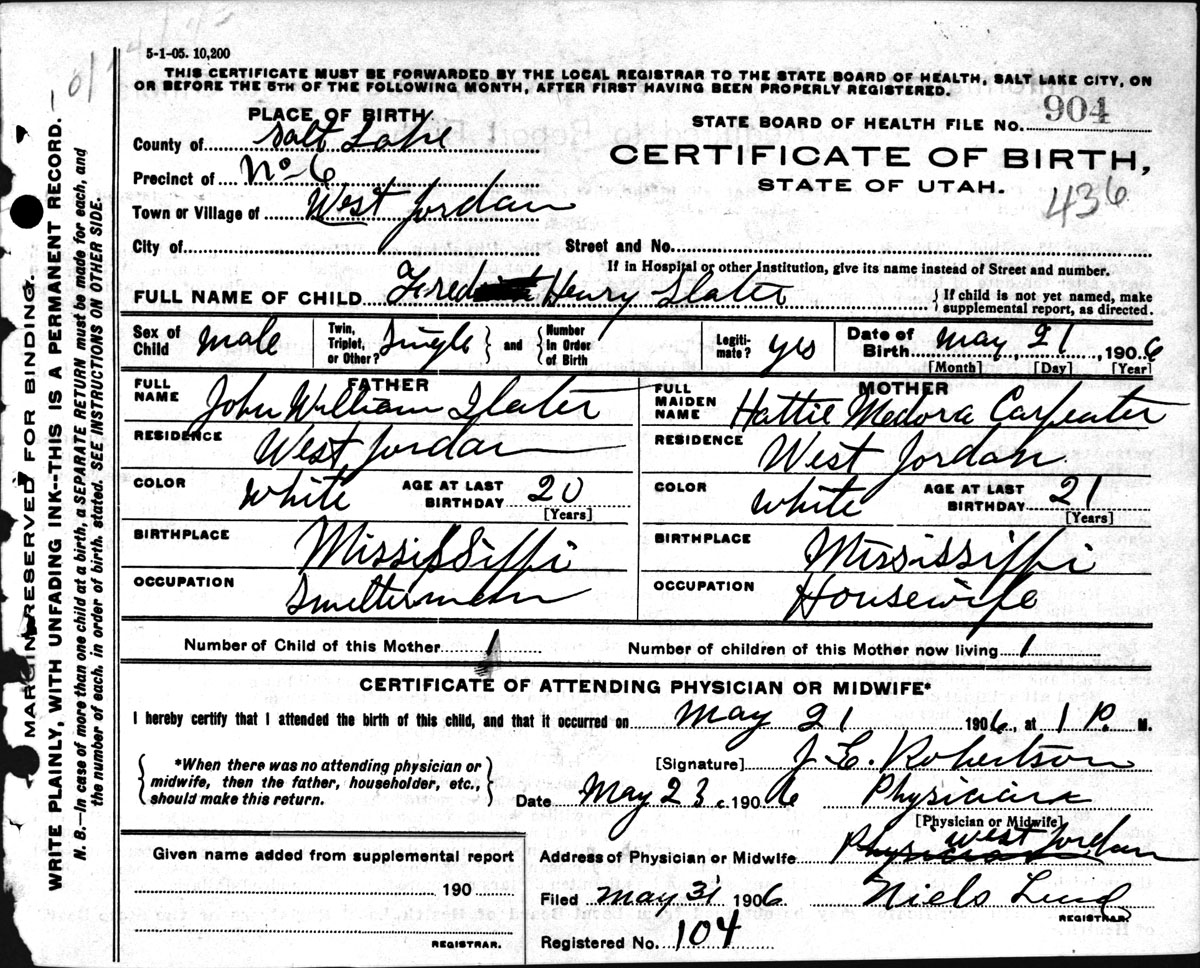 5-1-05. 10,200
THIS CERTIFICATE MUST BE FORWARDED BY THE LOCAL REGISTRAR TO THE STATE BOARD OF HEALTH, SALT LAKE CITY, ON
OR BEFORE THE 5TH OF THE FOLLOWING MONTH, AFTER FIRST HAVING BEEN PROPERLY REGISTERED.
PLACE OF BIRTH
STATE BOARD OF HEALTH FILE NO. 904
County of Salt Lake
CERTIFICATE OF BIRTH,
Precinct of No 6
STATE OF UTAH.
436
Town or Village of West Jordan
City of Street and No.
If in Hospital or other Institution, give its name instead of Street and number.
FULL NAME OF CHILD Fred Henry Slater { If child is not yet named, make supplemental report, as directed.
Sex of Child male Twin, Triplet, or Other? Single } and { Number In Order of Birth Legiti-mate? yes Date of Birth May 21, 1906
[Month] [Day] [Year]
FATHER
MOTHER
FULL NAME John William Slater
FULL MAIDEN NAME Hattie Medora Carpenter
RESIDENCE West Jordan
RESIDENCE West Jordan
COLOR white AGE AT LAST BIRTHDAY 20 [Years]
COLOR white AGE AT LAST BIRTHDAY 21 [Years]
BIRTHPLACE Mississippi
BIRTHPLACE Mississippi
OCCUPATION Smelterman
OCCUPATION Housewife
Number of Child of this Mother 1 Number of children of this Mother now living 1
CERTIFICATE OF ATTENDING PHYSICIAN OR MIDWIFE*
I hereby certify that I attended the birth of this child, and that it occurred on May 21 1906, at 1 P. M.
{ *When there was no attending physician or
midwife, then the father, householder, etc.,
should make this return. }
[Signature] J. E. Robertson
Date May 23 1906 Physician
[Physician or Midwife]
Address of Physician or Midwife West Jordan
Given name added from supplemental report
190
REGISTRAR.
Filed May 31 1906 Niels Lind
REGISTRAR.
Registered No. 104
MARGIN RESERVED FOR BINDING.
WRITE PLAINLY, WITH UNFADING INK--THIS IS A PERMANENT RECORD.
N. B.—In case of more than one child at a birth, a SEPARATE RETURN must be made for each, and
the number of each, in order of birth, stated. SEE INSTRUCTIONS ON OTHER SIDE.